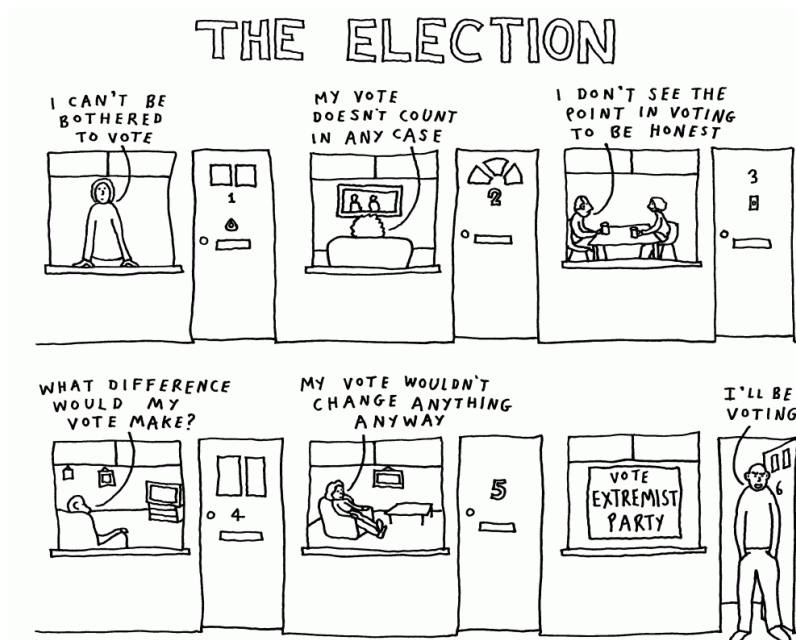 THE ELECTION
I CAN'T BE
BOTHERED
TO VOTE
1
MY VOTE
DOESN'T COUNT
IN ANY CASE
2
I DON'T SEE THE
POINT IN VOTING
TO BE HONEST
3
WHAT DIFFERENCE
WOULD MY
VOTE MAKE?
4
MY VOTE WOULDN'T
CHANGE ANYTHING
ANYWAY
5
VOTE
EXTREMIST
PARTY
I'LL BE
VOTING
6